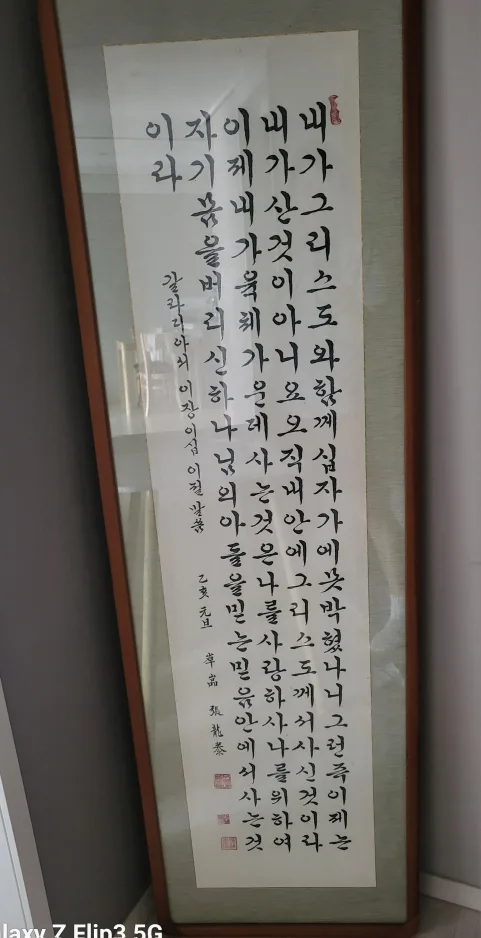 내가그리스도와함께십자가에못박혔나니그런즉이제는
내가산것이아니요오직내안에그리스도께서사신것이라
이제내가육체가운데사는것은나를사랑하사나를위하여
자기몸을버리신하나님의아들을믿는믿음안에서사는것
이라
갈라디아서 이장이십이절 말씀
乙亥 元旦 張龍泰
alaxy Z Flip3 5G